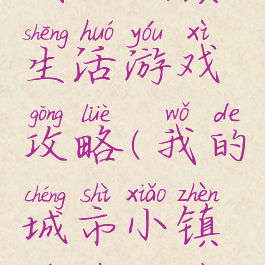 shēng huó yóu xì
生活游戏
gōng lüè wǒ de
攻略(我的
chéng shì xiǎo zhèn
城市小镇